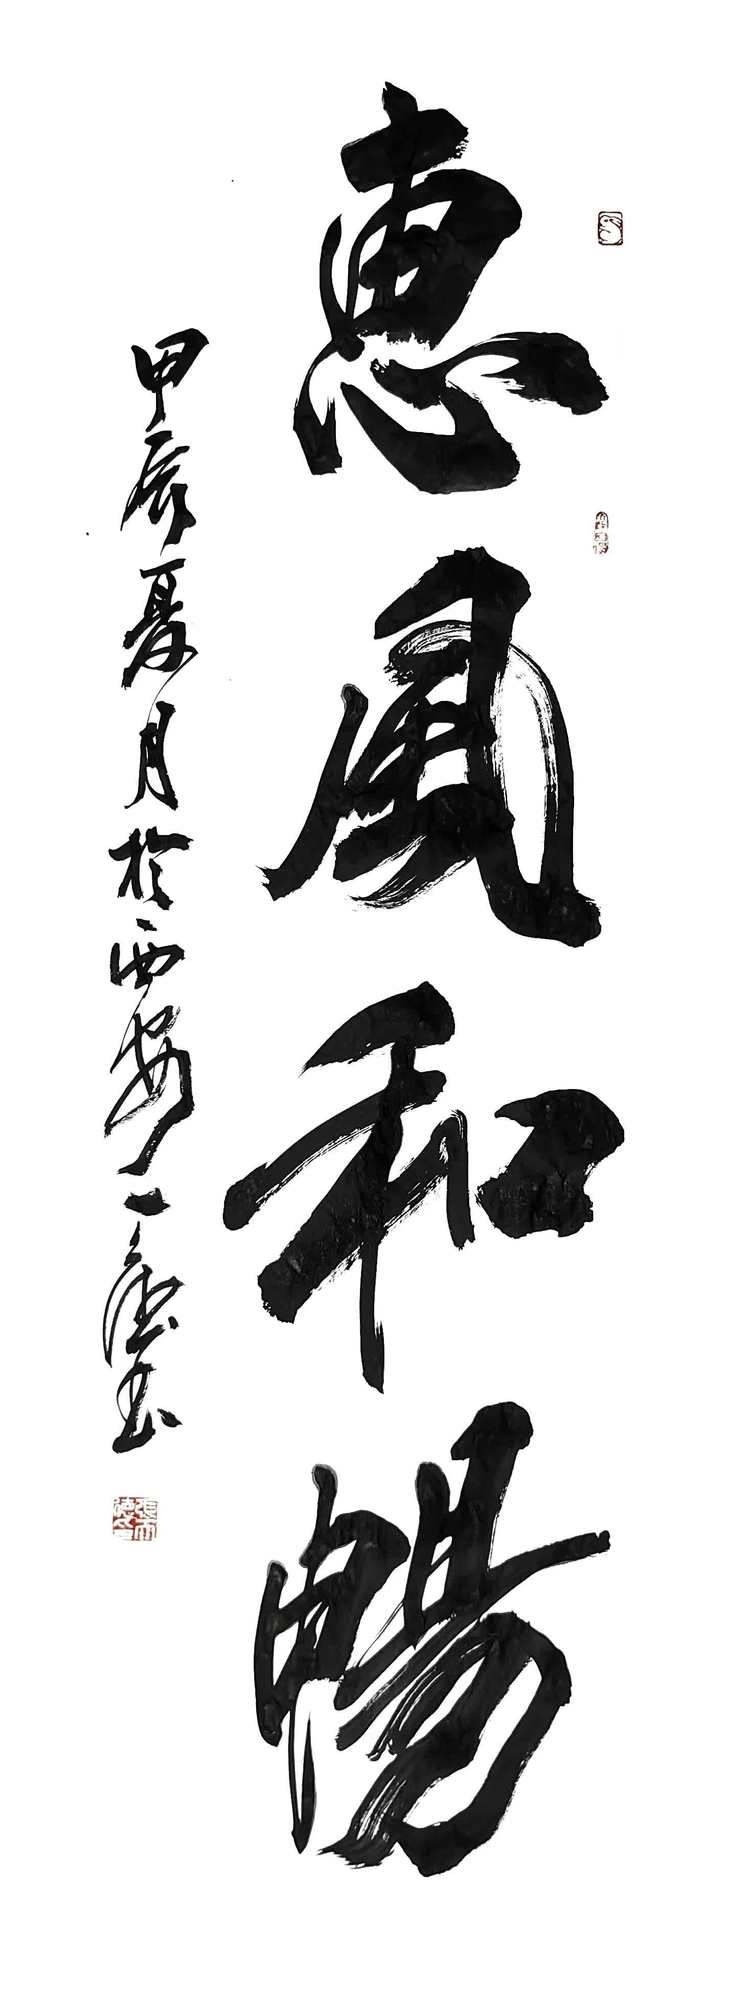 惠風和暢
甲辰夏月於西安一塵書